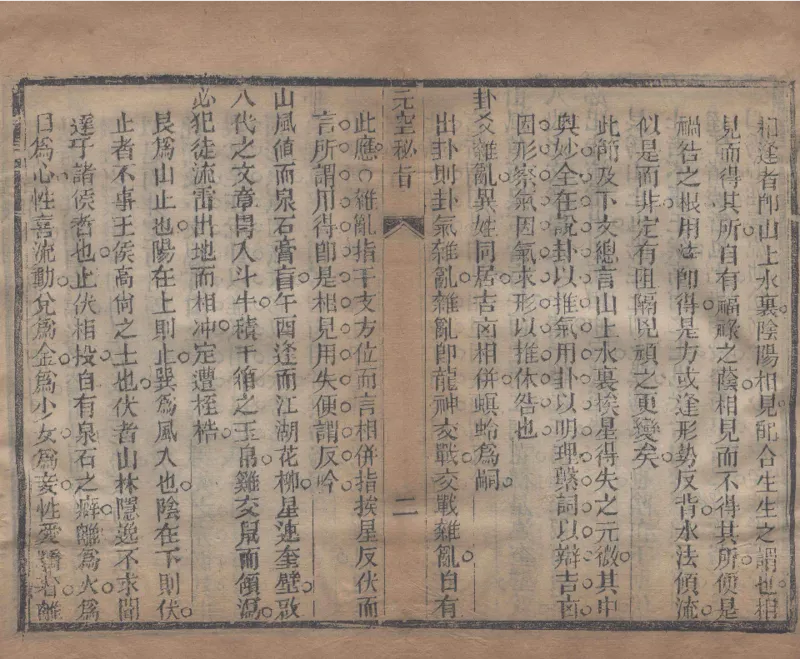 相逢者卽山上水裏陰陽相見配合生生之謂也相
見而得其所自有福祿之蔭相見而不得其所便是
禍咎之根用法卽得是方或逢形勢反背水法傾流
似是而非定有阻隔兇頑之更變矣
此師及下文總言山上水裏挨星得失之元微其中
與妙全在說卦以推氣用卦以明理繫詞以辯吉凶
因形察氣因氣求形以推休咎也
卦爻雜亂異姓同居吉凶相併螟蛉爲嗣
出卦則卦氣雜亂雜亂卽龍神交戰交戰雜亂自有
元空秘旨
二
此應○雜亂指干支方位而言相併指挨星反伏而
言所謂用得卽是相見用失便謂反吟
山風值而泉石膏肓午酉逢而江湖花柳星連奎壁啟
八代之文章胃入斗牛積千箱之玉帛雞交鼠而傾瀉
必犯徒流雷出地而相冲定遭桎梏
艮爲山止也陽在上則止巽爲風入也陰在下則伏
止者不事王侯高尙之士也伏者山林隱逸不求聞
達乎諸侯者也止伏相投自有泉石之癖離爲火爲
日爲心性喜流動兌爲金爲少女爲妾性愛艷着離